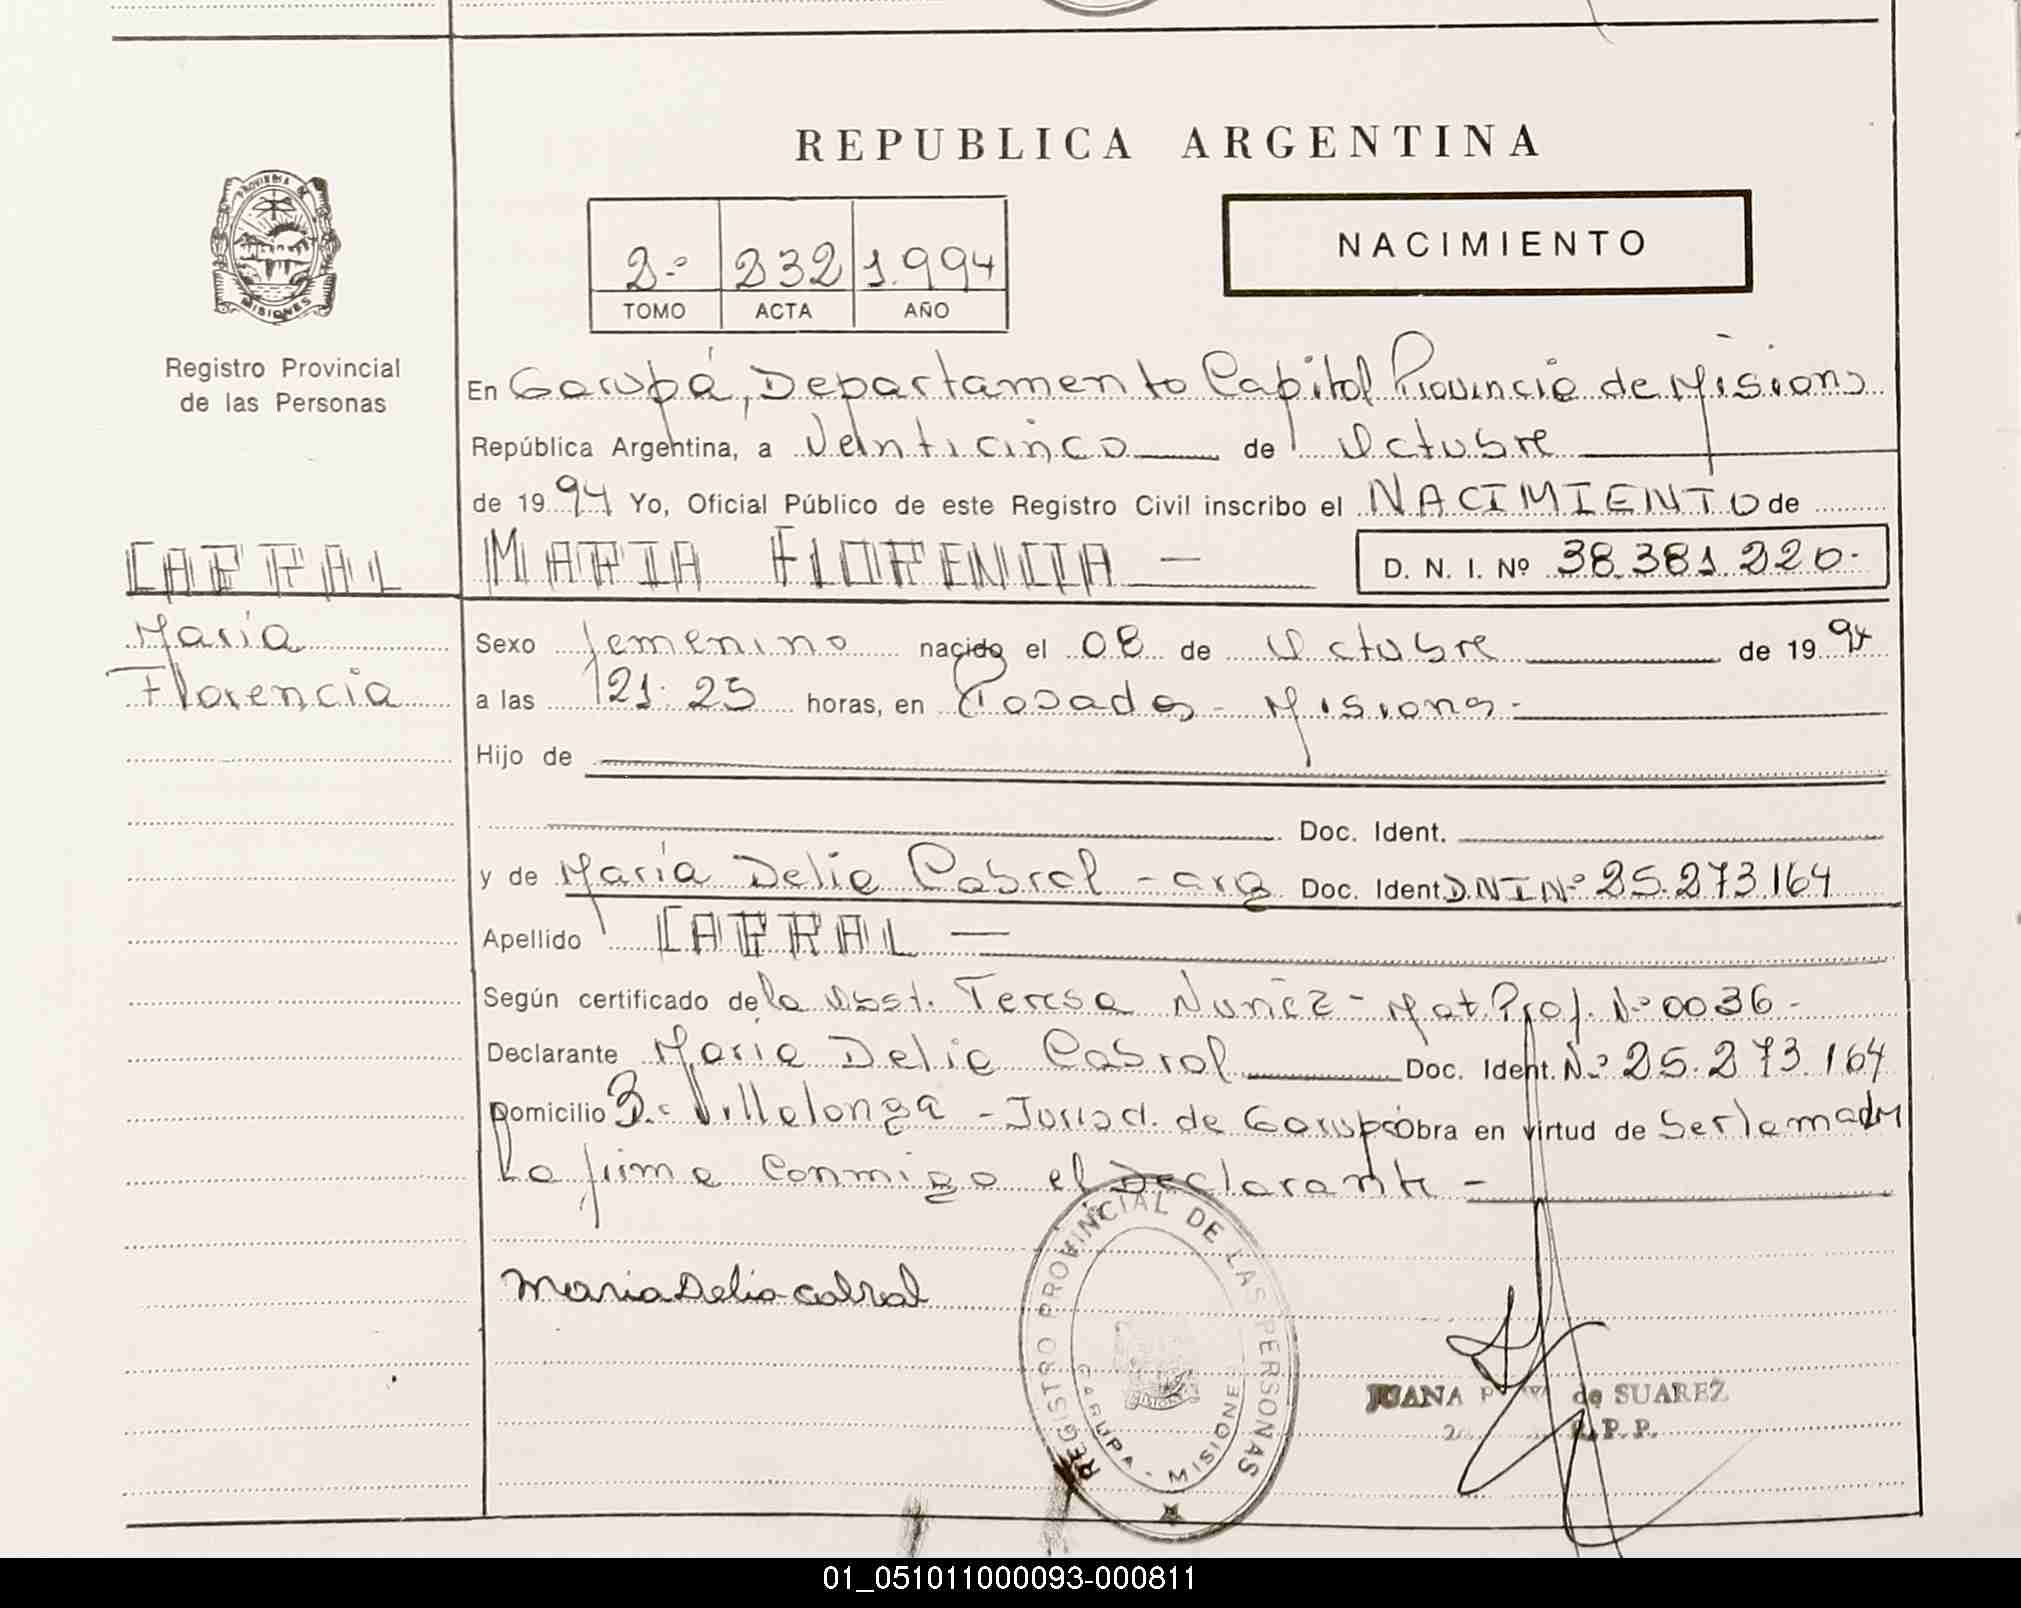 REPUBLICA ARGENTINA
PROVINCIA DE
MISIONES
Registro Provincial
de las Personas
2.º 232 1.994
TOMO ACTA AÑO
NACIMIENTO
En Garupá, Departamento Capital Provincia de Misiones
República Argentina, a Veinticinco de Octubre
de 1994 Yo, Oficial Público de este Registro Civil inscribo el NACIMIENTO de
CABRAL MARIA FLORENCIA — D. N. I. Nº 38.381.220.
María
Florencia
Sexo femenino nacido el 08 de Octubre de 1994
a las 21:25 horas, en Posadas - Misiones -
Hijo de
Doc. Ident.
y de María Delia Cabral - arg Doc. Ident. DNI Nº 25.273.164
Apellido CABRAL —
Según certificado de la Obst. Teresa Nuñez - Mat. Prof. Nº 0036 -
Declarante María Delia Cabral Doc. Ident. Nº 25.273.164
Domicilio Bº Villalonga - Jurisd. de Garupá Obra en virtud de Ser la madre
La firma conmigo el Declarante -
Maria Delia cabral
REGISTRO PROVINCIAL DE LAS PERSONAS
GARUPA - MISIONES
JUANA de SUAREZ
R.P.P.
01_051011000093-000811